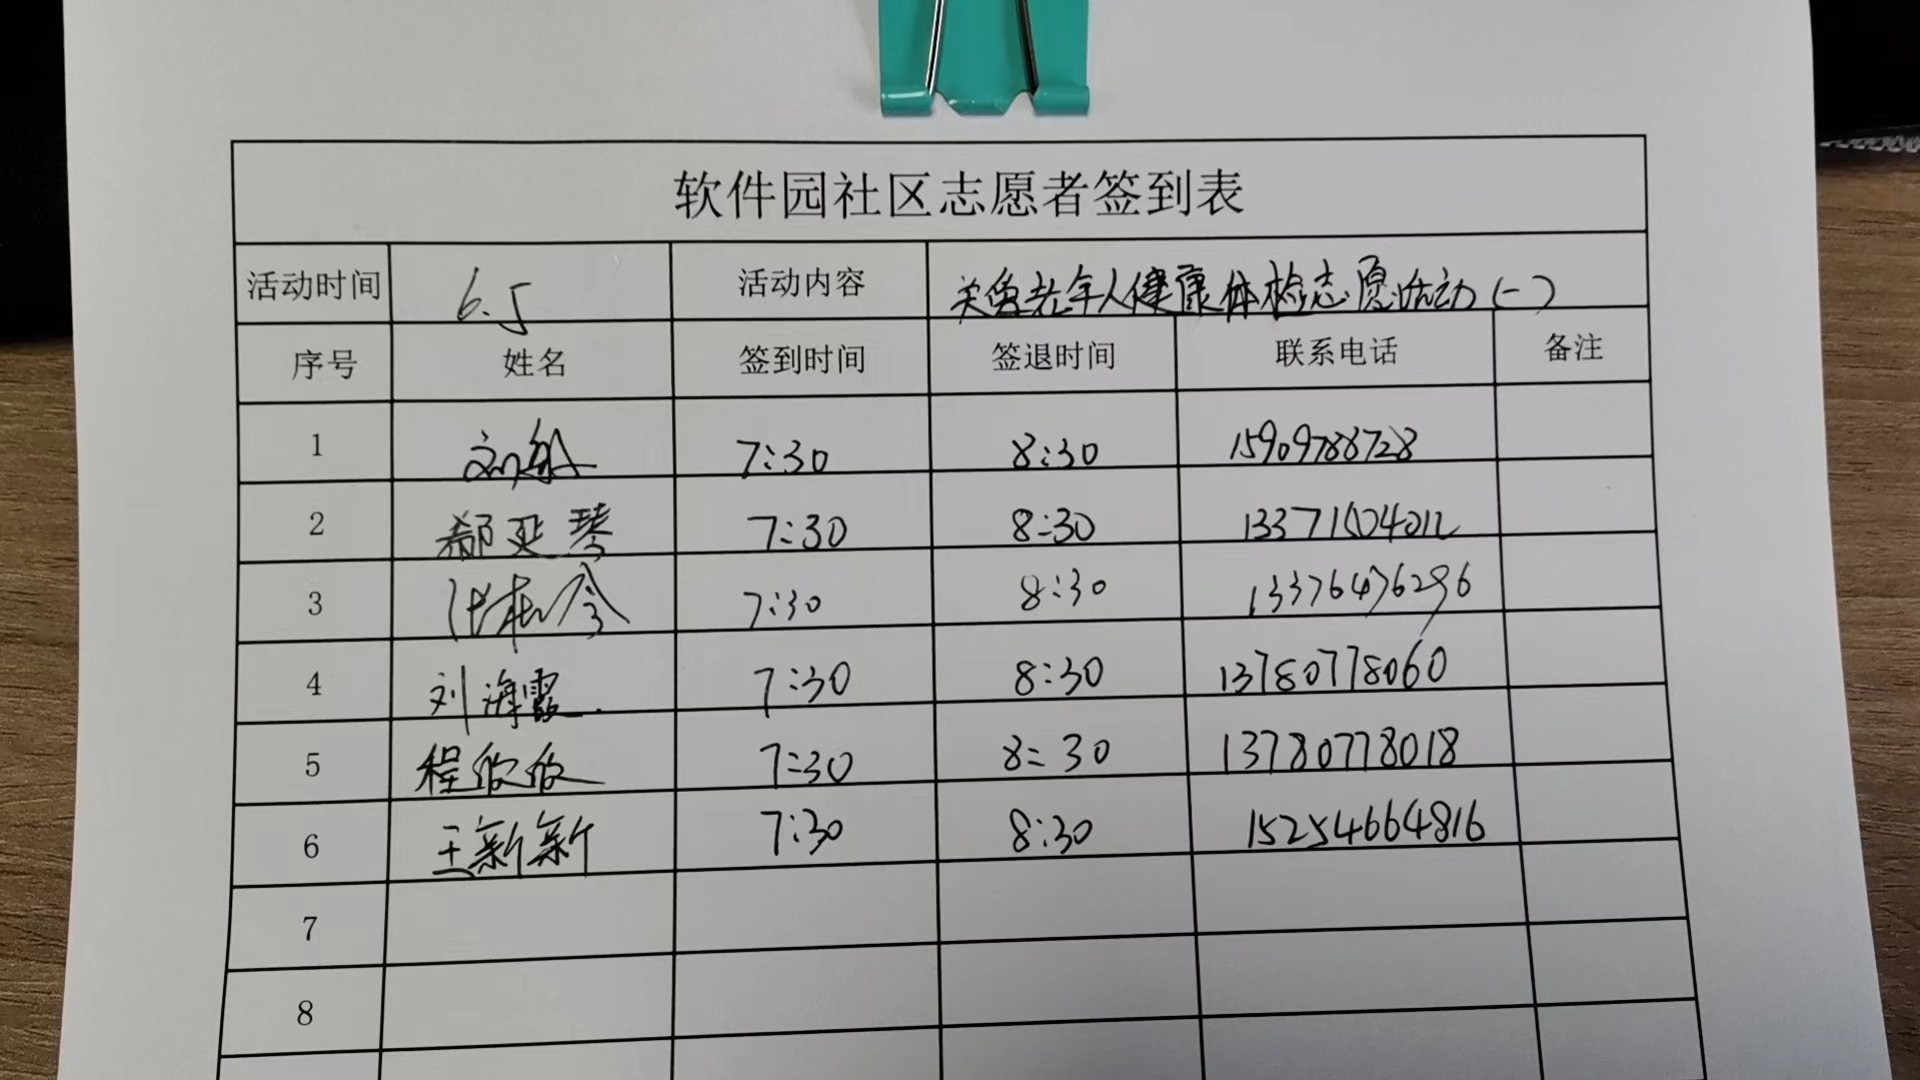 软件园社区志愿者签到表
活动时间 6.5 活动内容 关爱老年人健康体检志愿活动(一)
序号 姓名 签到时间 签退时间 联系电话 备注
1 7:30 8:30 15909788728
2 郗延琴 7:30 8:30 13371504012
3 7:30 8:30 13376476296
4 刘海霞 7:30 8:30 13780778060
5 程欣欣 7:30 8:30 13780778018
6 王新新 7:30 8:30 15254664816
7
8